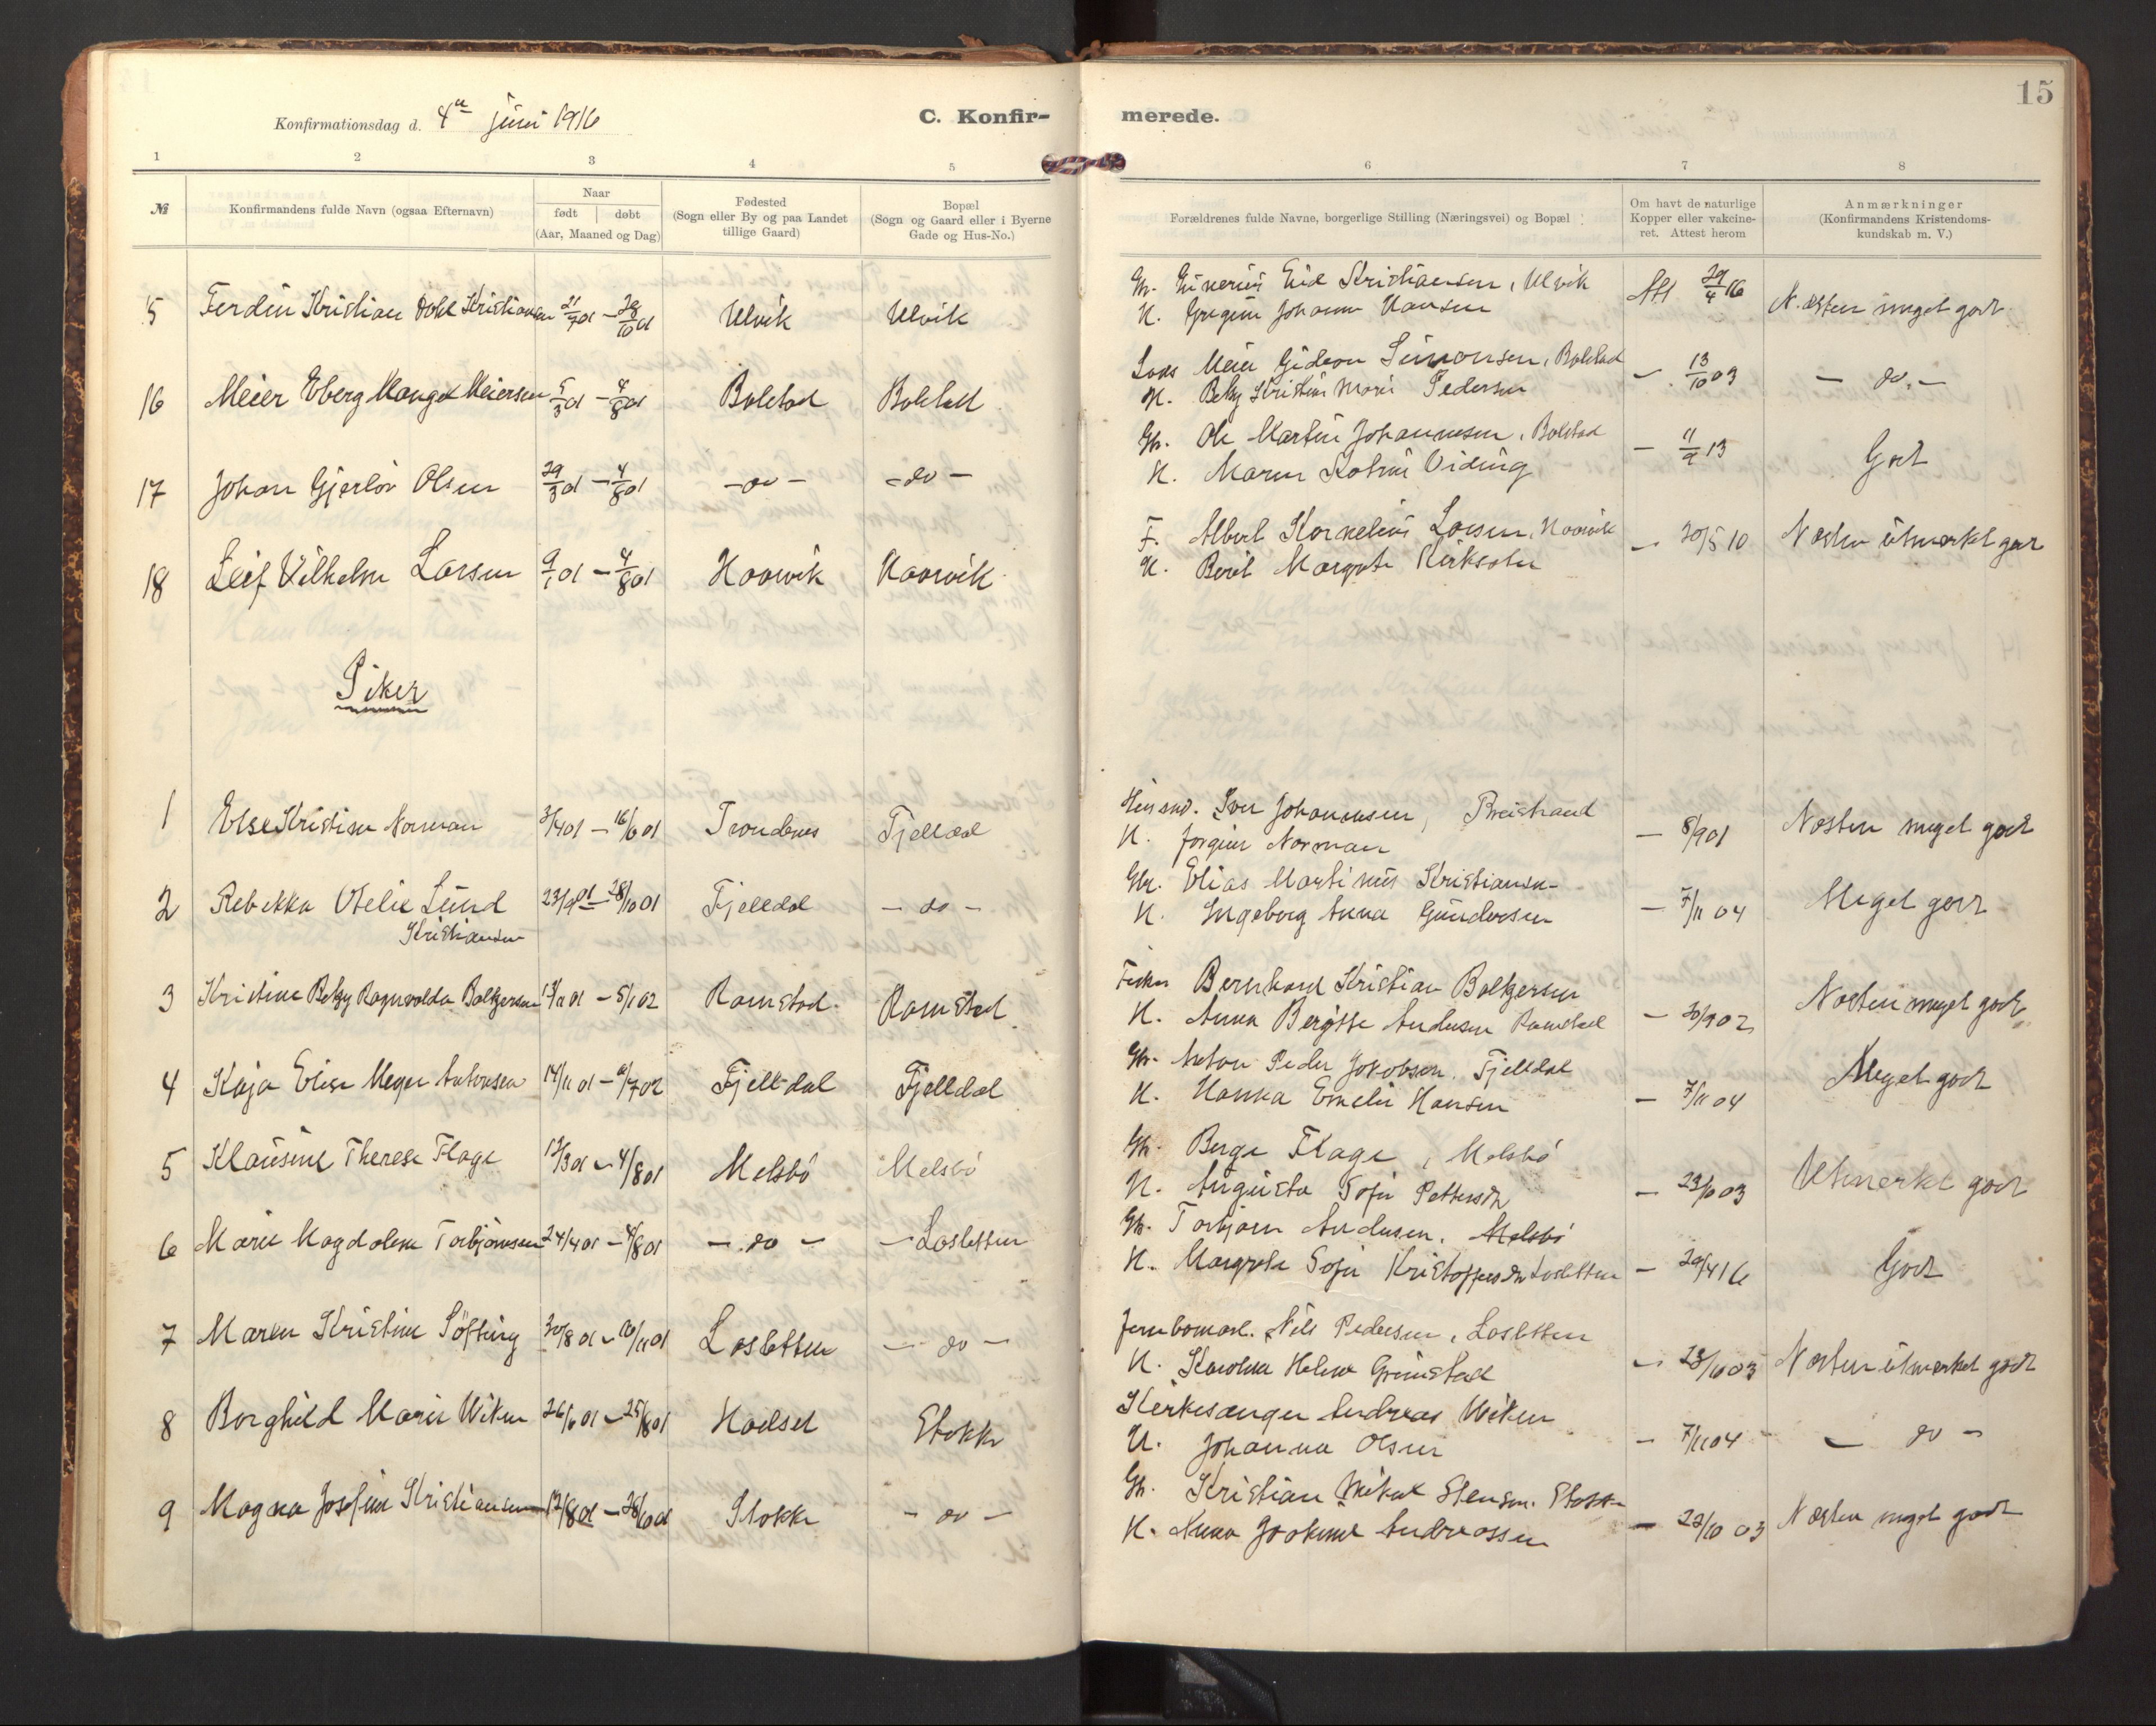 15
Konfirmationsdag d. 4de juni 1916
C. Konfir-
merede.
1 2 3 4 5 6 7 8
№
Konfirmandens fulde Navn (ogsaa Efternavn)
Naar
født | døbt
(Aar, Maaned og Dag)
Fødested
(Sogn eller By og paa Landet
tillige Gaard)
Bopæl
(Sogn og Gaard eller i Byerne
Gade og Hus-No.)
Forældrenes fulde Navne, borgerlige Stilling (Næringsvei) og Bopæl
Om havt de naturlige
Kopper eller vakcine-
ret. Attest herom
Anmærkninger
(Konfirmandens Kristendoms-
kundskab m. V.)
5 Ferdin Kristian Dahl Kristiansen 21/9 01 – 28/10 01 Ulvik Ulvik
Gb. Einerius Kristiansen, Ulvik Att 29/4 16 Næsten meget godt
K. Johanna Hansen
16 Meier Eberg Hanget Meiersen 5/3 01 – 4/8 01 Bolstad Bolstad
Meier Gideon Simonsen, Bolstad – 13/10 03 – do. –
K. Betzy Kristine Marie Pedersen
17 Johan Gjerløv Olsen 29/3 01 – 4/8 01 – do – – do –
Gb. Ole Martin Johannesen, Bolstad – 11/9 13 Godt
K. Maren Viding
18 Leif Vilhelm Larsen 9/1 01 – 4/8 01 Haarvik Haarvik
F. Albert Kornelius Larsen, Haarvik – 20/5 10 Næsten utmerket godt
K. Berit Margrete
Piker
1 Else Kristine Norman 3/4 01 – 16/6 01 Trondenes Fjelldal
Iver Johannesen, Breistrand – 8/9 01 Næsten meget godt
K. Jørgine Norman
2 Rebekka Otelie Lund 23/9 01 – 28/10 01 Fjelldal – do –
Kristiansen
Gb. Elias Martinus Kristiansen – 7/11 04 Meget godt
K. Ingeborg Anna Gundersen
3 Kristine Betzy Ragnvalda Boltzersen 13/11 01 – 5/1 02 Ramstad. Ramstad.
Fisker Bernhard Kristian Boltzersen
K. Anna Bergitte Andersen Ramstad – 30/9 02 Næsten meget godt
4 Kaja Elise Meyer Antonsen 14/11 01 – 6/7 02 Fjelldal Fjelldal
Gb. Anton Peder Jakobsen, Fjelldal Meget godt
K. Hanna Emelie Hansen – 7/11 04
5 Klausine Therese Flage 13/3 01 – 4/8 01 Melsbö Melsbö
Gb. Berge Flage, Melsbö
K. Augusta Sofie Pettersdtr – 23/10 03 Utmerket godt
6 Marie Magdalene Torbjørnsen 24/4 01 – 4/8 01 – do – – Lasletten
Gb. Torbjørn Andersen, Melsbö
K. Margrete Sofie Kristoffersdtr Lasletten – 29/4 16 Godt
7 Maren Kristine Söfting 30/8 01 – 10/11 01 Lasletten – do –
Jernbanearb. Nils Pedersen, Lasletten
K. Karolina Helene Grimstad – 23/10 03 Næsten utmerket godt
8 Borghild Marie Wiken 26/6 01 – 25/8 01 Hadsel Stokke
Kirkesanger Andreas Wiken – 7/11 04 – do –
K. Johanna Olsen
9 Magna Josefine Kristiansen 12/8 01 – 28/10 01 Stokke – do –
Gb. Kristian Mikal Stensen. Stokke
K. Anna Joakime Andreassen – 22/10 03 Næsten meget godt